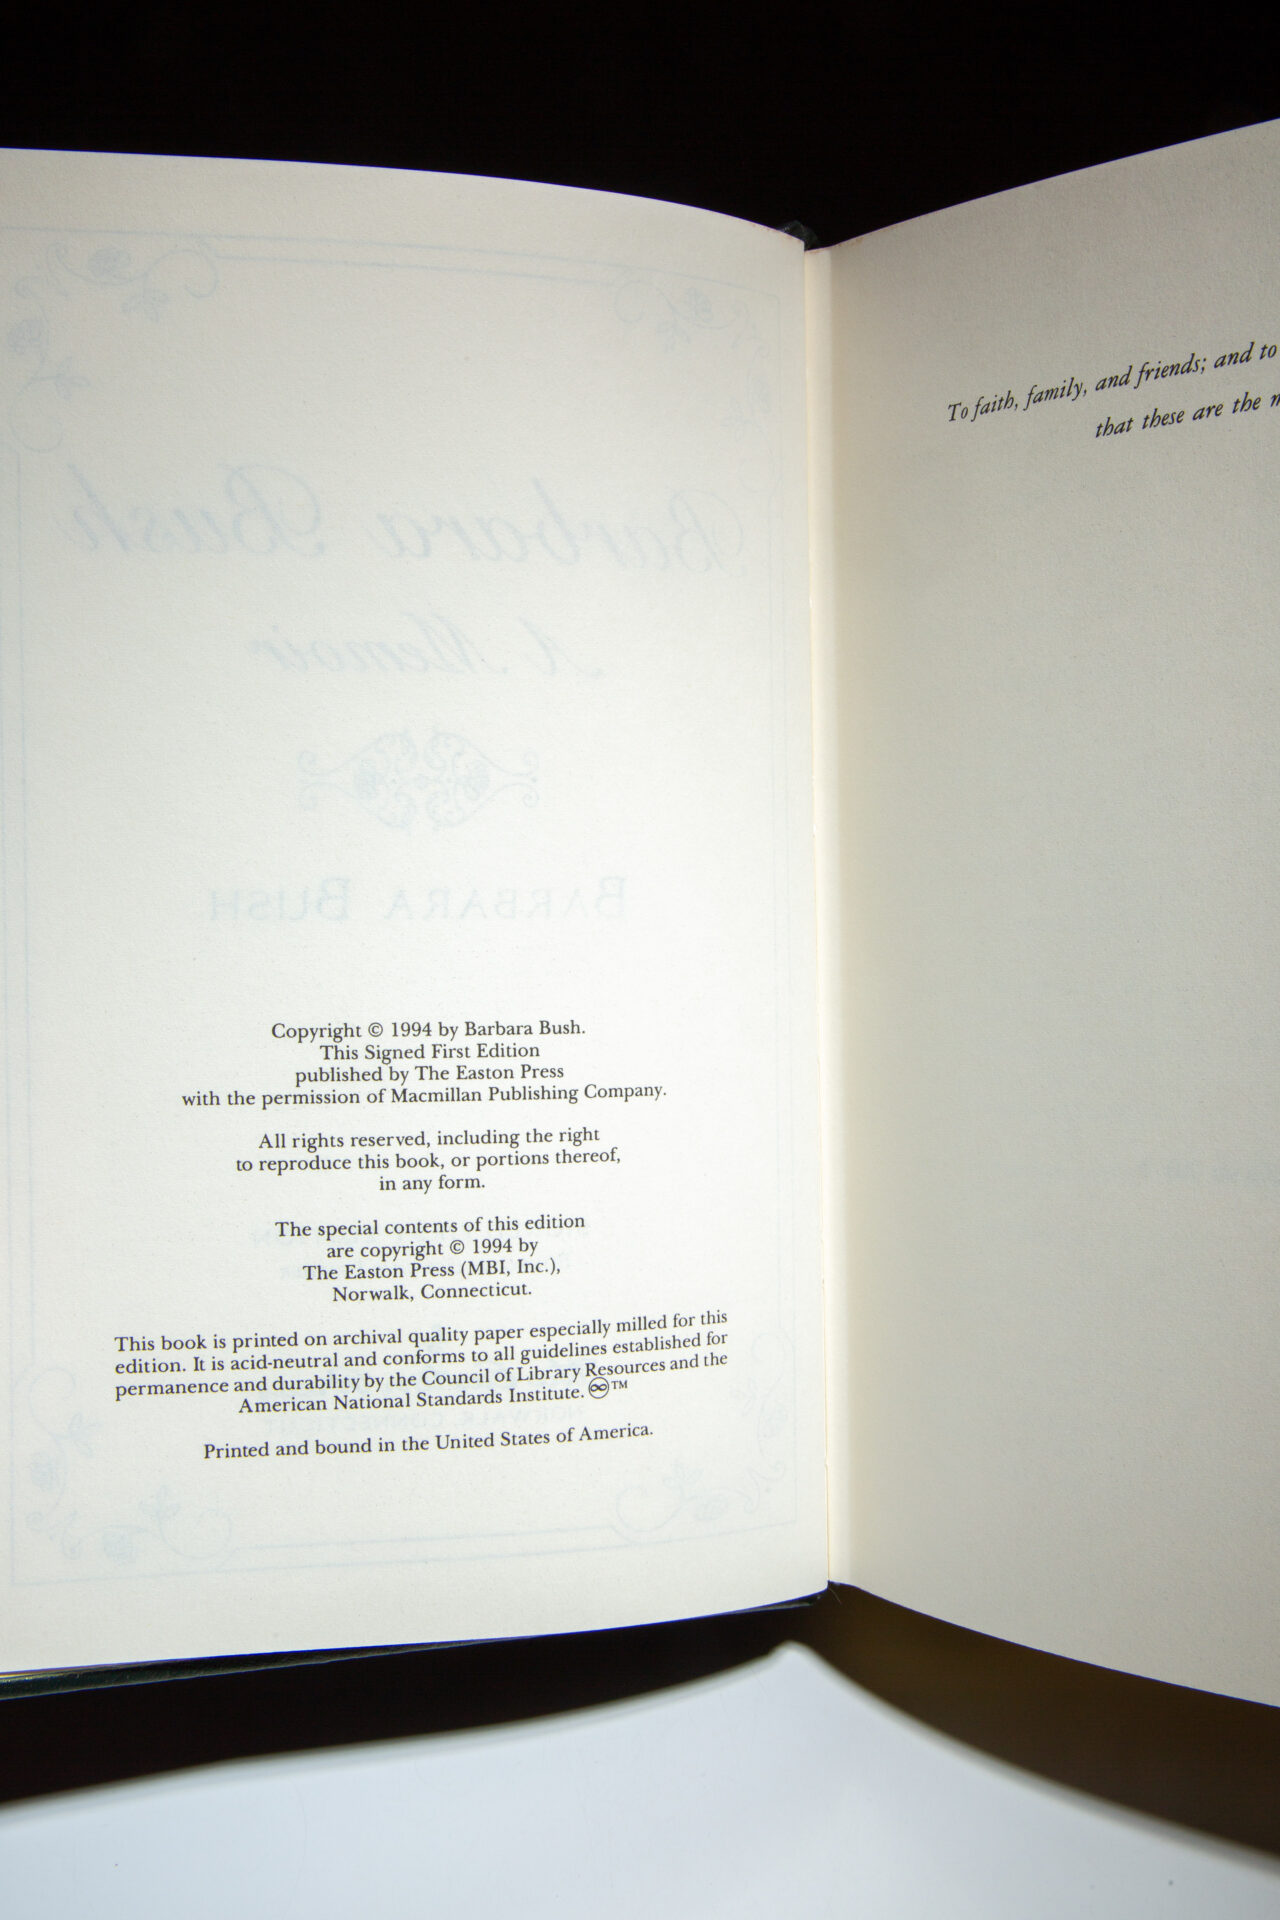 Barbara Bush
A Memoir
BARBARA BUSH
Copyright © 1994 by Barbara Bush.
This Signed First Edition
published by The Easton Press
with the permission of Macmillan Publishing Company.
All rights reserved, including the right
to reproduce this book, or portions thereof,
in any form.
The special contents of this edition
are copyright © 1994 by
The Easton Press (MBI, Inc.),
Norwalk, Connecticut.
This book is printed on archival quality paper especially milled for this
edition. It is acid-neutral and conforms to all guidelines established for
permanence and durability by the Council of Library Resources and the
American National Standards Institute. ♾™
NORWALK, CONNECTICUT
Printed and bound in the United States of America.
To faith, family, and friends; and to
that these are the